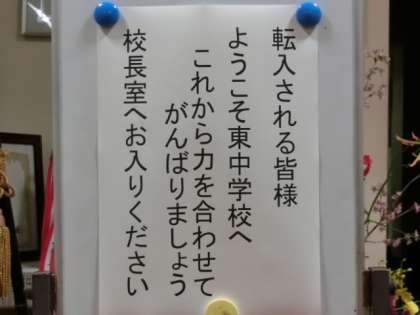 転入される皆様
ようこそ東中学校へ
これから力を合わせて
がんばりましょう
校長室へお入りください